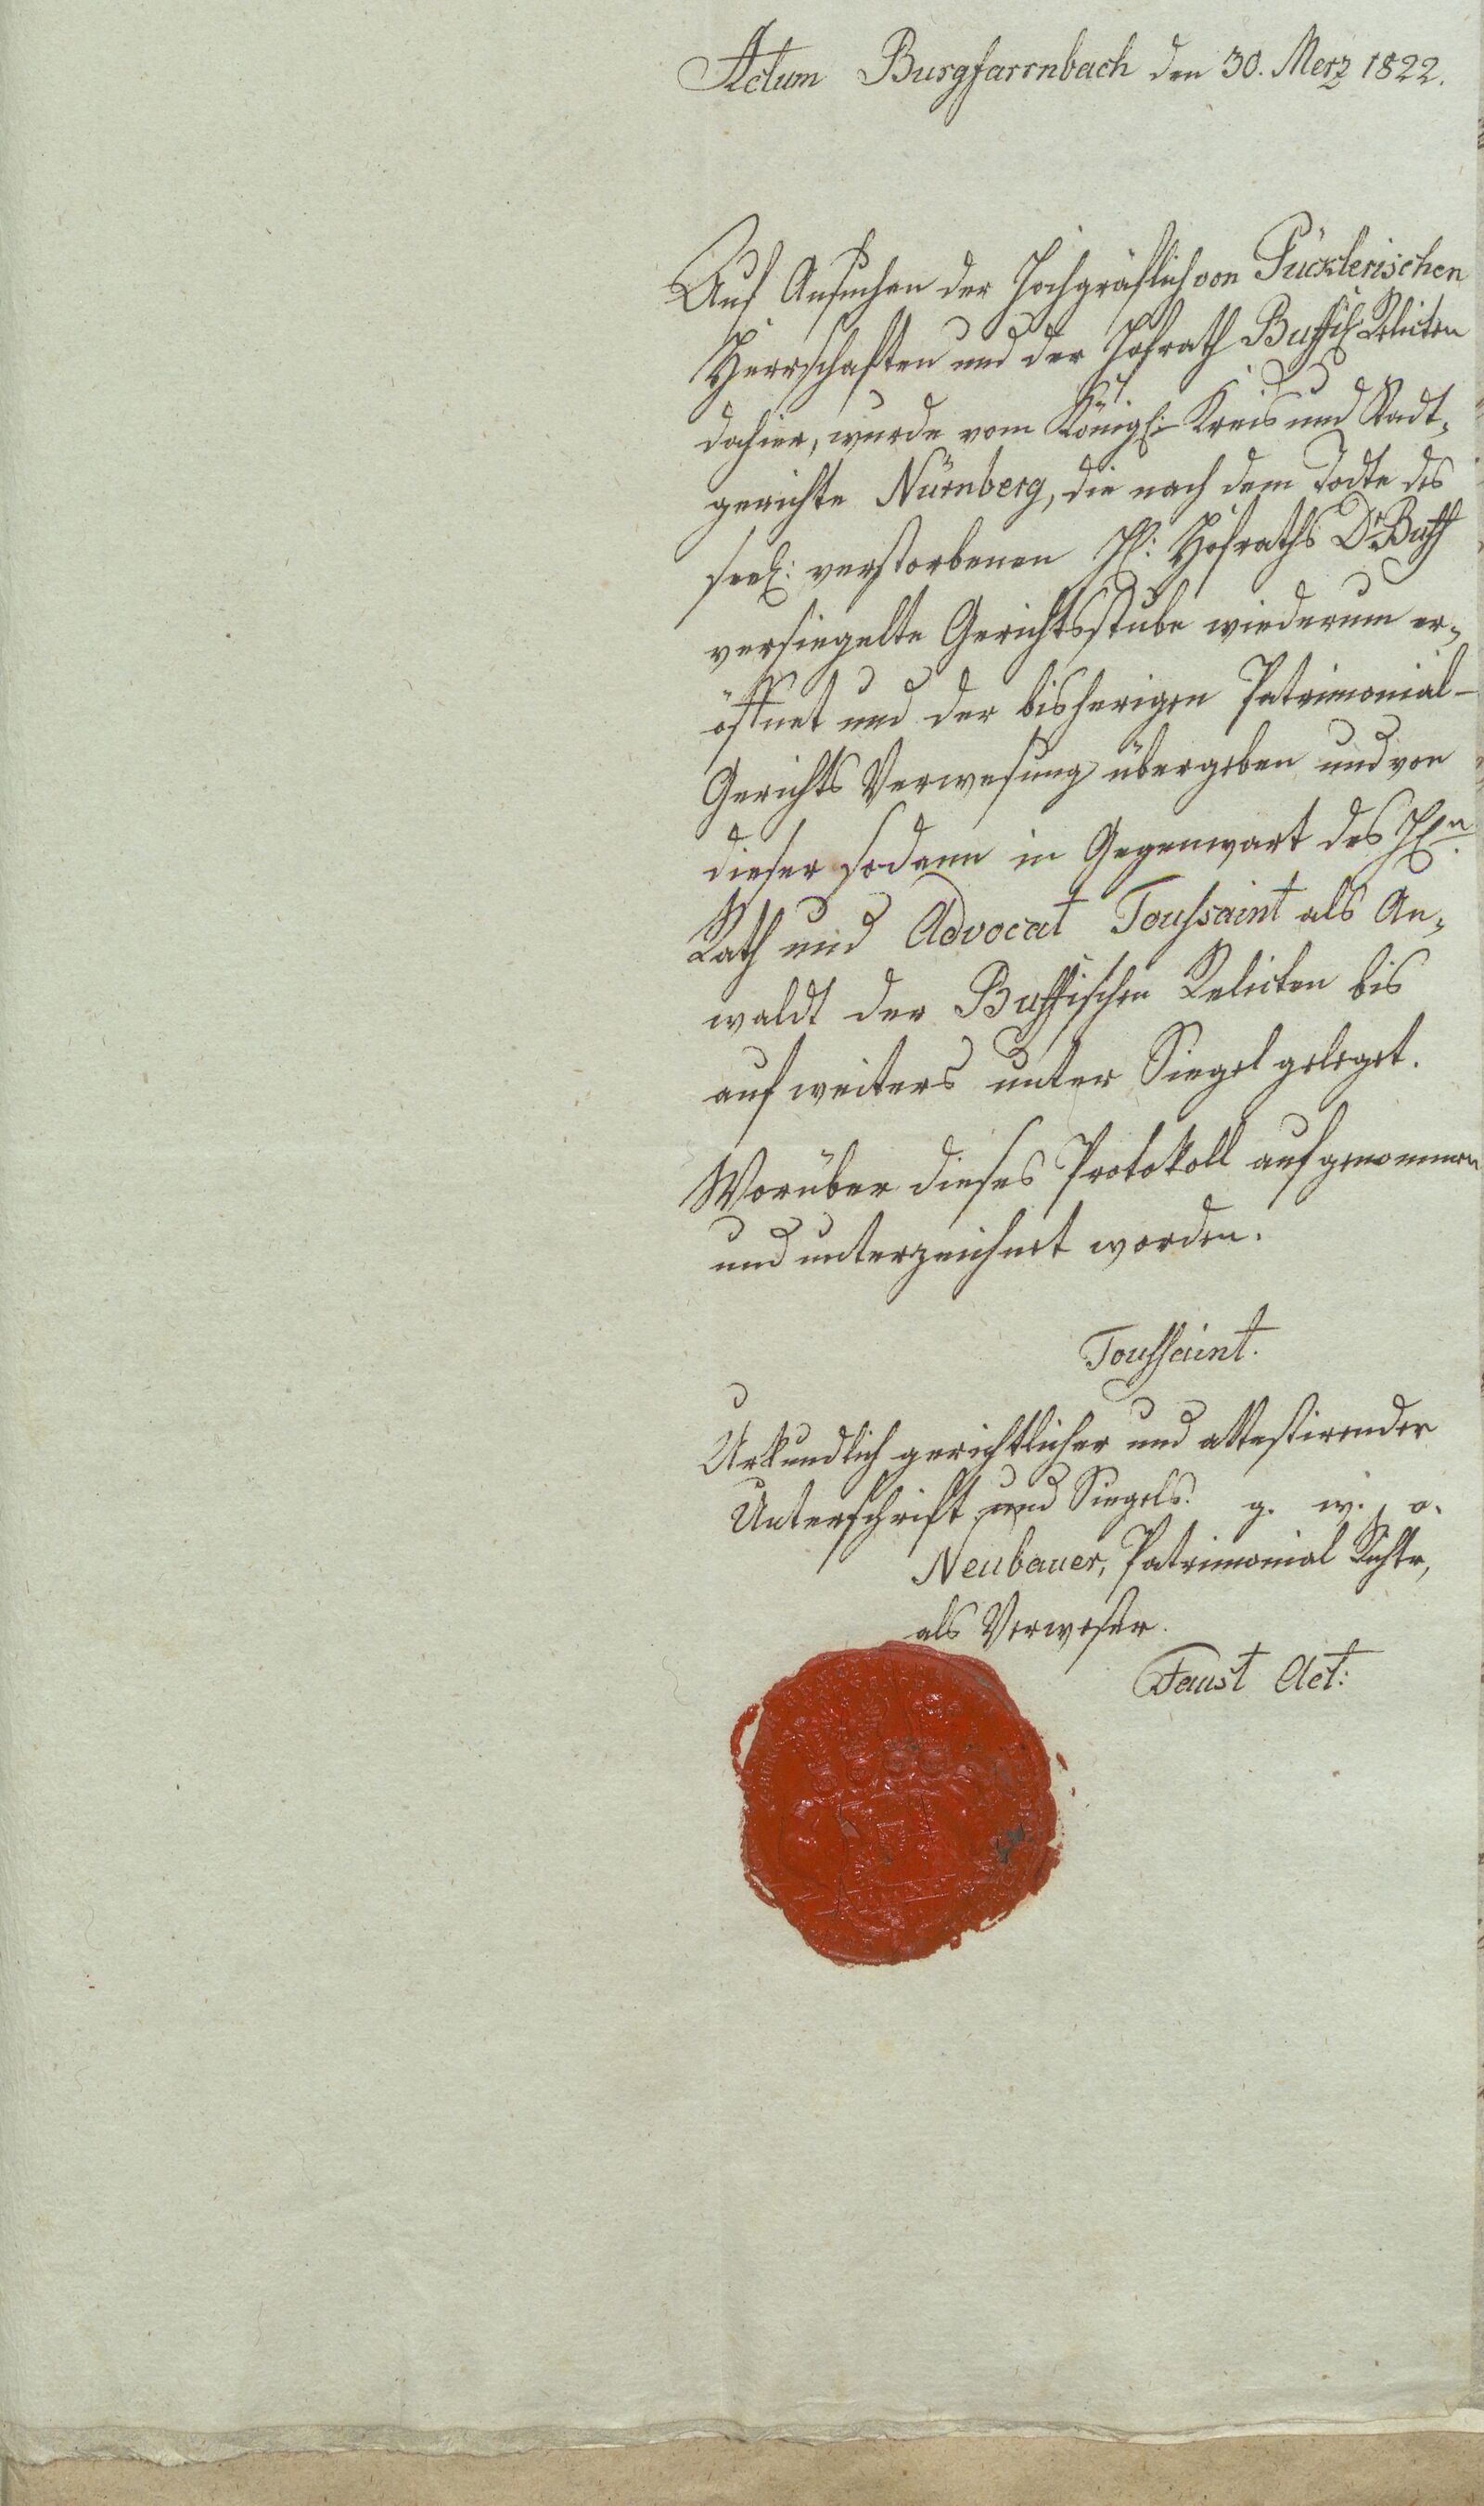 Actum Burgfarrnbach den 30. Merz 1822.
Auf Ansuchen der Hochgräflich von Pücklerischen
Herrschaften und der Hofrath Buffisch. Relicten
dahier, wurde vom Königl: Kreis und Stadt-
gerichte Nürnberg, die nach dem Todte des
seel: verstorbenen H: Hofraths Dr. Buff
versiegelte Gerichtsstube wiederum er-
öffnet und der bisherigen Patrimonial-
Gerichts Verwesung übergeben und von
dieser sodann in Gegenwart des Hn.
Rath und Advocat Toussaint als An-
waldt der Buffischen Relicten bis
auf weiters unter Siegel geleget.
Worüber dieses Protokoll aufgenommen
und unterzeichnet worden.
Toussaint.
Urkundlich gerichtlicher und attestirender
Unterschrift und Siegels. g. w. o.
Neubauer, Patrimonial Richter,
als Verweser.
Faust Act: